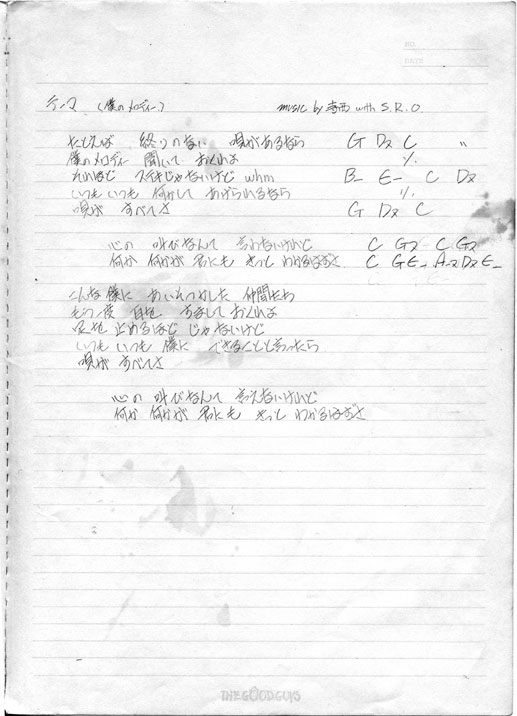 NO.
DATE
テーマ (僕のメロディー) music by 寺西 with S.R.O
たとえば 終りのない 唄があるなら G D7 C 〃
僕のメロディー 聞いて おくれよ ٪
それほど ステキじゃないけど whm B- E- C D7
いつも いつも 何かして あげられるなら ٪
唄が すべてさ G D7 C
心の 叫びなんて 言えないけれど C G7 C G7
何か 何かが 君にも きっと わかるはずさ C G E- A-7 D7 E-
こんな 僕に あいそつかした 仲間たち
もう一度 耳を すましておくれよ
足を 止めるほど じゃないけど
いつも いつも 僕に できることと言ったら
唄が すべてさ
心の 叫びなんて 言えないけれど
何か 何かが 君にも きっと わかるはずさ
THE GOOD GUYS